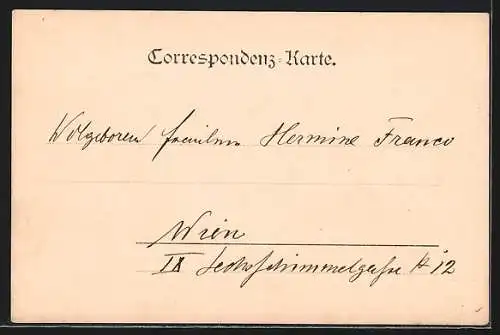 Correspondenz-Karte.
Wolgeboren Fräulein Hermine Franco
Wien
IX Sechsschimmelgasse # 12